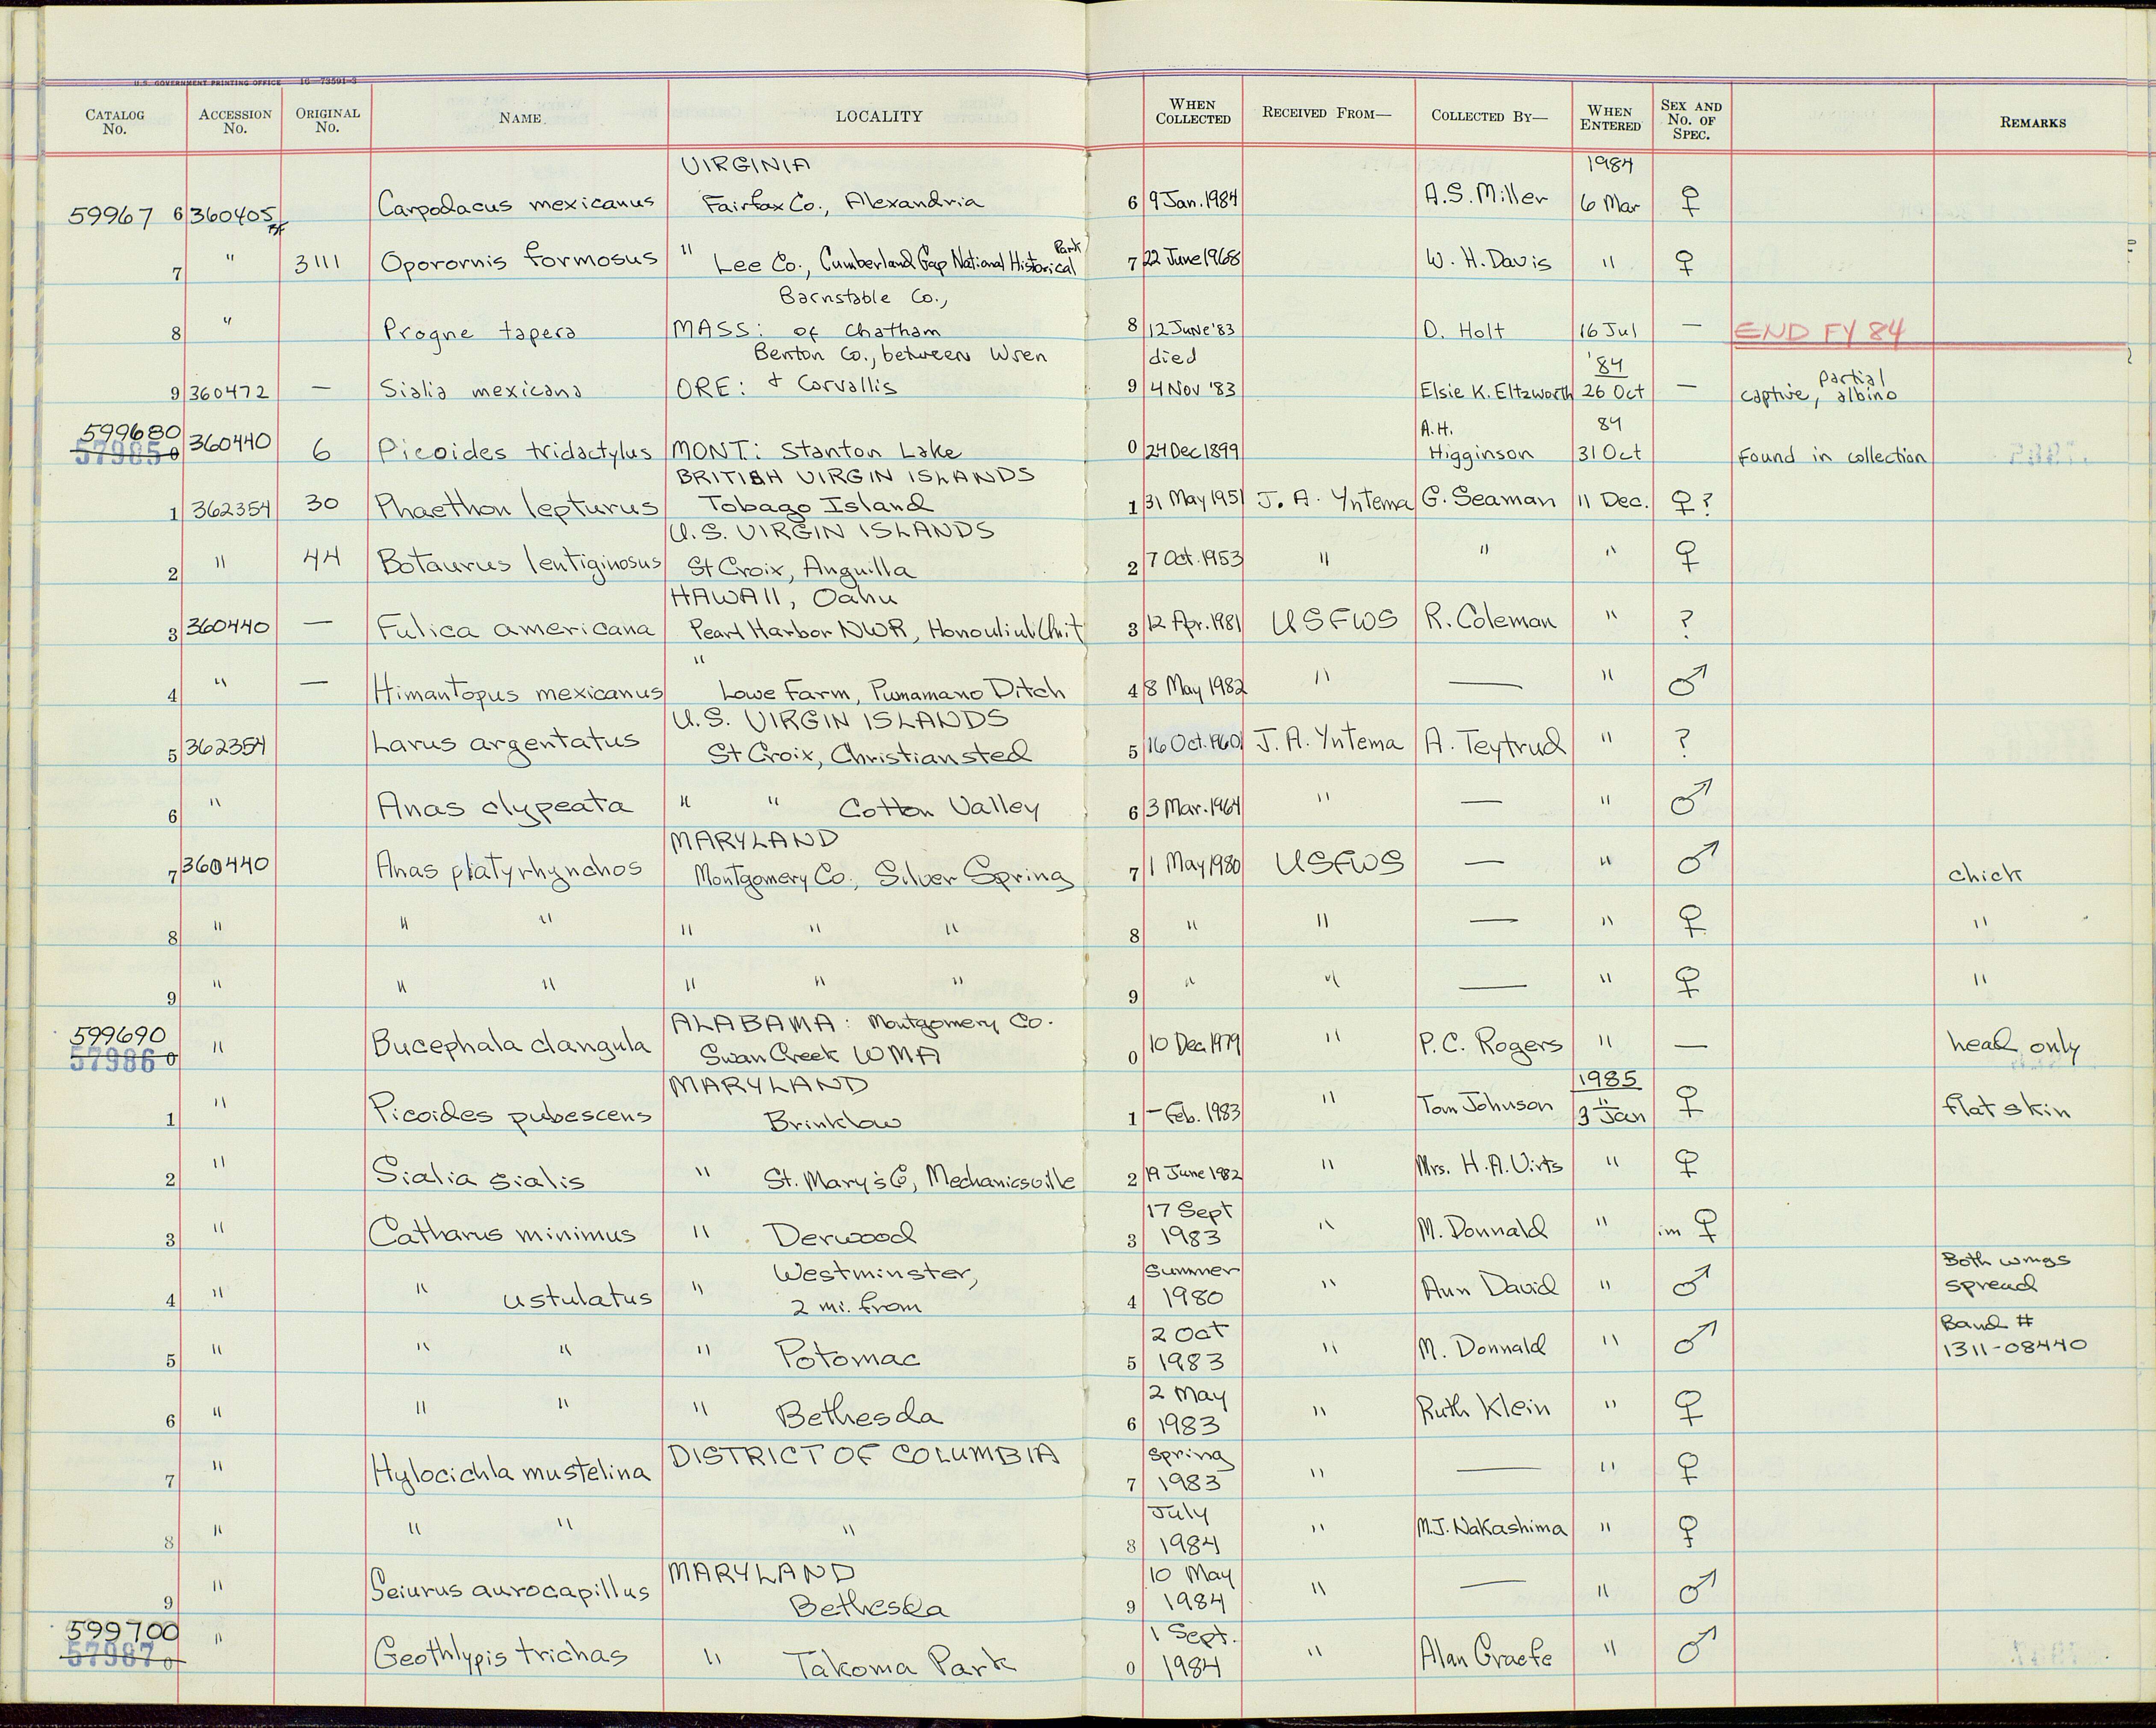 U.S. GOVERNMENT PRINTING OFFICE 16—73591-3
CATALOG No. ACCESSION No. ORIGINAL No. NAME LOCALITY WHEN COLLECTED RECEIVED FROM— COLLECTED BY— WHEN ENTERED SEX AND No. OF SPEC. REMARKS
VIRGINIA 1984
59967 6 360405 Carpodacus mexicanus Fairfax Co., Alexandria 6 9 Jan. 1984 A.S. Miller 6 Mar ♀
7 " 3111 Oporornis formosus " Lee Co., Cumberland Gap National Historical Park 7 22 June 1968 W. H. Davis " ♀
Barnstable Co.,
8 " Progne tapera MASS: of Chatham 8 12 June '83 D. Holt 16 Jul — END FY 84
Benton Co., between Wren died '84
9 360472 — Sialia mexicana ORE: + Corvallis 9 4 Nov '83 Elsie K. Eltzworth 26 Oct — captive, partial albino
599680 A.H. 84
57985 0 360440 6 Picoides tridactylus MONT: Stanton Lake 0 24 Dec 1899 Higginson 31 Oct Found in collection
BRITISH VIRGIN ISLANDS
1 362354 30 Phaethon lepturus Tobago Island 1 31 May 1951 J. A. Yntema G. Seaman 11 Dec. ♀?
U.S. VIRGIN ISLANDS
2 " 44 Botaurus lentiginosus St Croix, Anguilla 2 7 Oct. 1953 " " " ♀
HAWAII, Oahu
3 360440 — Fulica americana Pearl Harbor NWR, Honouliuli Unit 3 12 Apr. 1981 USFWS R. Coleman " ?
"
4 " — Himantopus mexicanus Lowe Farm, Punamano Ditch 4 8 May 1982 " — " ♂
U.S. VIRGIN ISLANDS
5 362354 Larus argentatus St Croix, Christiansted 5 16 Oct. 1960 J. A. Yntema A. Teytrud " ?
6 " Anas clypeata " " Cotton Valley 6 3 Mar. 1964 " — " ♂
MARYLAND
7 360440 Anas platyrhynchos Montgomery Co., Silver Spring 7 1 May 1980 USFWS — " ♂ chick
8 " " " " " " 8 " " — " ♀ "
9 " " " " " " 9 " " — " ♀ "
599690 ALABAMA: Montgomery Co.
57986 0 " Bucephala clangula Swan Creek WMA 0 10 Dec 1979 " P.C. Rogers " — head only
MARYLAND 1985
1 " Picoides pubescens Brinklow 1 — Feb. 1983 " Tom Johnson " 3 Jan ♀ flat skin
2 " Sialia sialis " St. Mary's Co, Mechanicsville 2 19 June 1982 " Mrs. H.A. Virts " ♀
17 Sept
3 " Catharus minimus " Derwood 3 1983 " M. Donnald " im ♀
Westminster, Summer Both wings
4 " " ustulatus " 2 mi. from 4 1980 " Ann David " ♂ spread
2 Oct Band #
5 " " " " Potomac 5 1983 " M. Donnald " ♂ 1311-08440
2 May
6 " " " " Bethesda 6 1983 " Ruth Klein " ♀
DISTRICT OF COLUMBIA Spring
7 " Hylocichla mustelina 7 1983 " — " ♀
July
8 " " " " 8 1984 " M.J. Nakashima " ♀
MARYLAND 10 May
9 " Seiurus aurocapillus Bethesda 9 1984 " — " ♂
599700 1 Sept.
57987 0 " Geothlypis trichas " Takoma Park 0 1984 " Alan Graefe " ♂